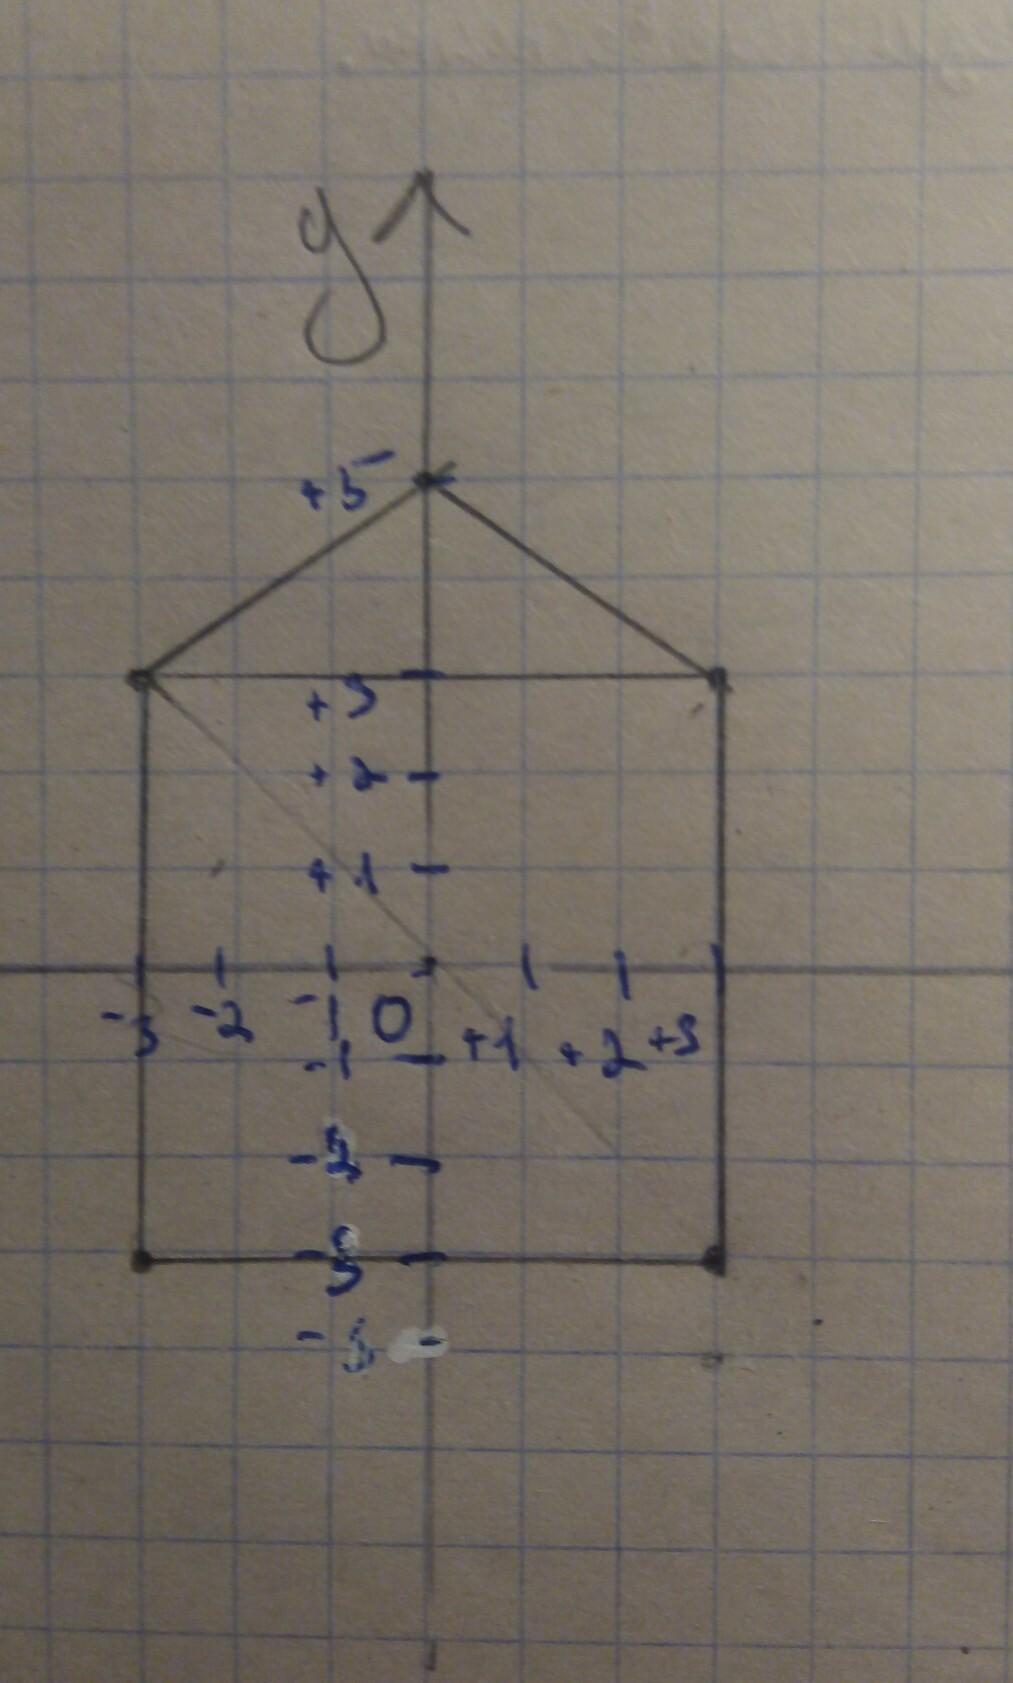 y
+5
+3
+2
+1
-3 -2 -1 0 +1 +2 +3
-1
-2
-3